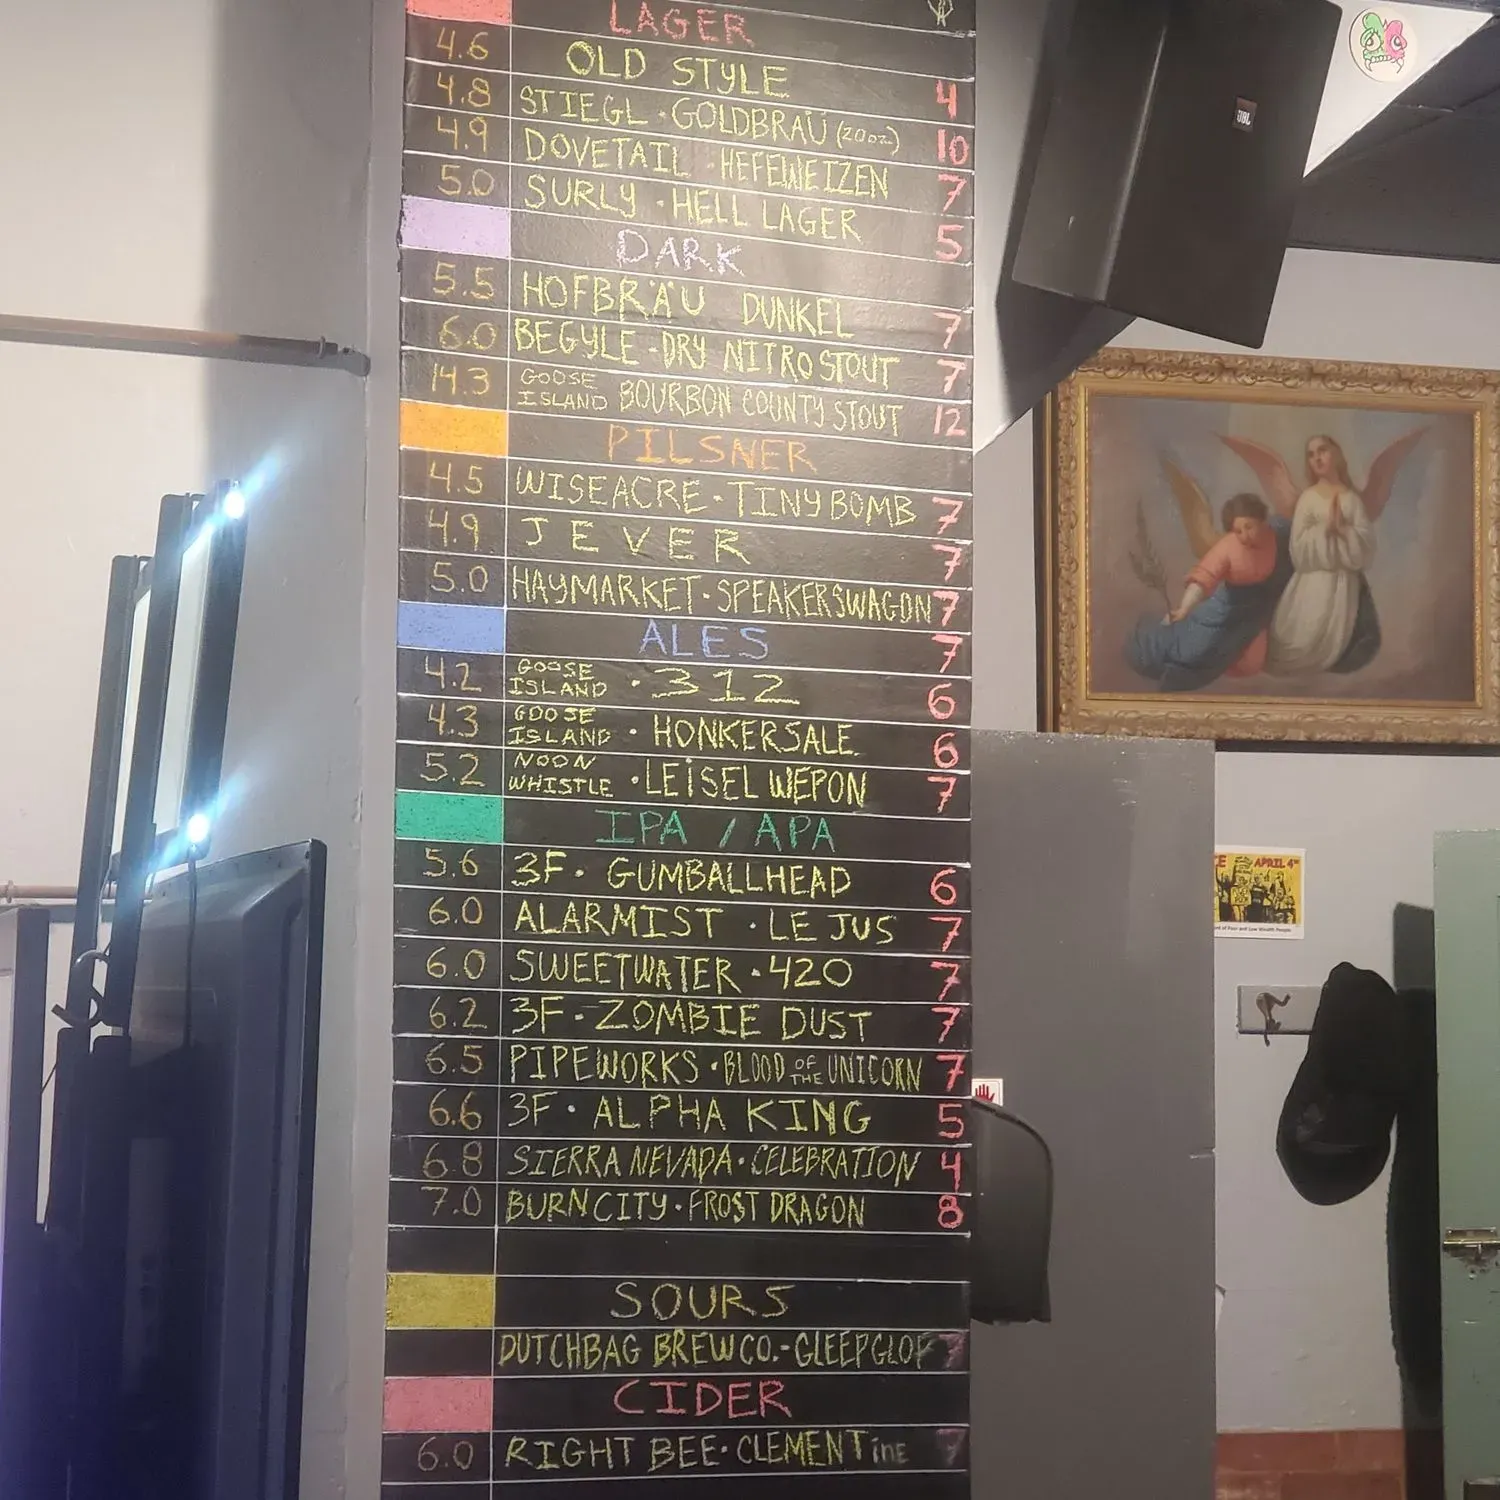 LAGER
4.6 OLD STYLE 4
4.8 STIEGL · GOLDBRAÜ (20oz) 10
4.9 DOVETAIL · HEFEWEIZEN 7
5.0 SURLY · HELL LAGER 5
DARK
5.5 HOFBRÄU DUNKEL 7
6.0 BEGYLE · DRY NITRO STOUT 7
14.3 GOOSE ISLAND BOURBON COUNTY STOUT 12
PILSNER
4.5 WISEACRE · TINY BOMB 7
4.9 JEVER 7
5.0 HAYMARKET · SPEAKERSWAGON 7
ALES 7
4.2 GOOSE ISLAND · 312 6
4.3 GOOSE ISLAND · HONKERSALE 6
5.2 NOON WHISTLE · LEiSEL WEPON 7
IPA / APA
5.6 3F · GUMBALLHEAD 6
6.0 ALARMIST · LE JUS 7
6.0 SWEETWATER · 420 7
6.2 3F · ZOMBIE DUST 7
6.5 PIPEWORKS · BLOOD OF THE UNICORN 7
6.6 3F · ALPHA KING 5
6.8 SIERRA NEVADA · CELEBRATION 4
7.0 BURN CITY · FROST DRAGON 8
SOURS
DUTCHBAG BREW CO. - GLEEPGLOP 7
CIDER
6.0 RIGHT BEE · CLEMENTinE 7
JBL
APRIL 4TH